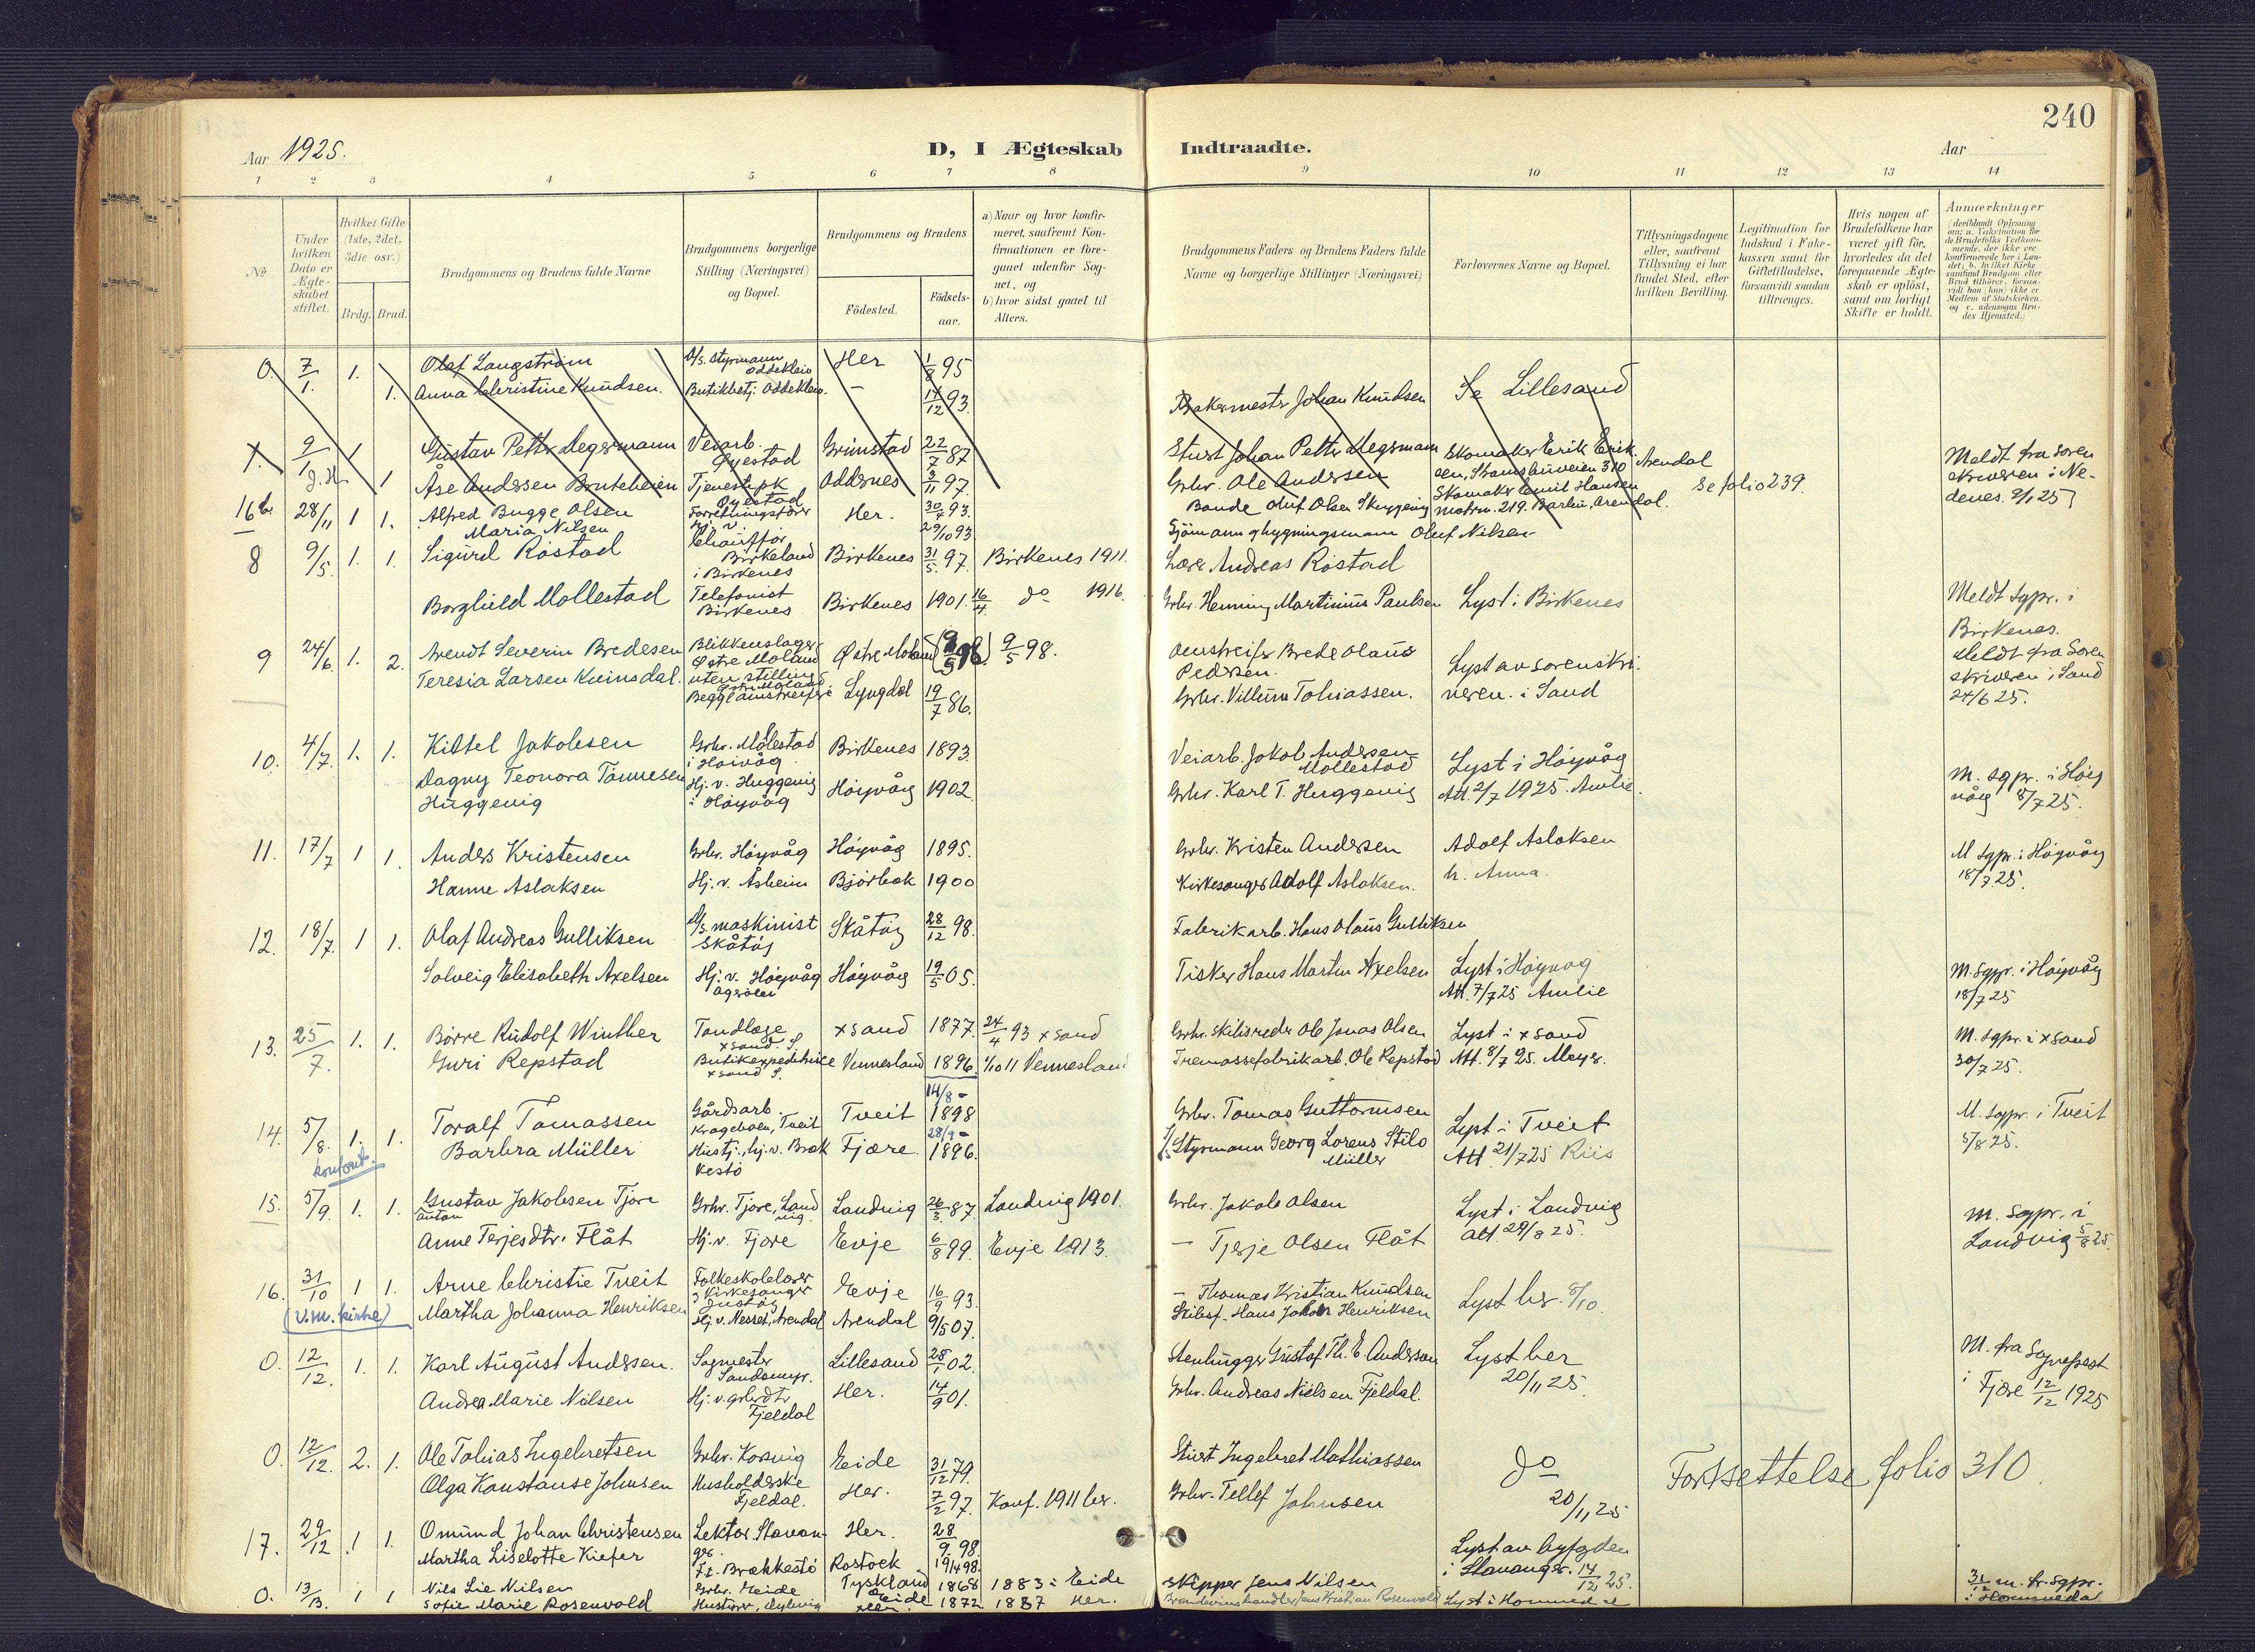 240
Aar 1925.
D, I Ægteskab Indtraadte.
Aar
1 2 3 4 5 6 7 8 9 10 11 12 13 14
No
Under hvilken Dato er Ægteskabet stiftet.
Hvilket Gifte (1ste, 2det, 3die osv.)
Brdg. Brud.
Brudgommens og Brudens fulde Navne
Brudgommens borgerlige Stilling (Næringsvei) og Bopæl.
Brudgommens og Brudens
Födested.
Födselsaar.
a) Naar og hvor konfirmeret, saafremt Konfirmationen er foregaaet udenfor Sognet, og
b) hvor sidst gaaet til Alters.
Brudgommens Faders og Brudens Faders fulde Navne og borgerlige Stillinger (Næringsvei)
Forlovernes Navne og Bopæl.
Tillysningsdagene eller, saafremt Tillysning ei har fundet Sted, efter hvilken Bevilling.
Legitimation for Indskud i Enkekassen samt for Giftetilladelse, forsaavidt saadan tiltrænges.
Hvis nogen af Brudefolkene har været gift för, hvorledes da det foregaaende Ægteskab er oplöst, samt om lovligt Skifte er holdt.
Anmærkninger
0. 7/1. 1. Olaf Langström D/s. styrmann Oddekleiv Her 1/8 95
1. Anna Christine Knudsen. Butikbetj. Oddekleiv. — 14/12 93. Bakermester Johan Knudsen Se Lillesand
9/1 1 Gustav Petter Megermann Veiarb. Øyestad Grimstad 22/7 87 Johan Petter Megermann Skomaker Erik Erik
1 Åse Andersen Tjenestepk Øyestad Oddernes 3/11 97. Grbr. Ole Andersen Arendal Meldt fra Soren
skriveren i Ne-
denes. 9/1 25
Skomaker Emil Hansen
Se folio 239.
16b. 28/11 1 1. Alfred Bugge Olsen Forretningsfører Her. 30/ 93. Olaf Olsen
Maria Nilsen 29/10 93 Sjömann Oluf Nilsen
8 9/5. 1. 1. Sigurd Röstad Chauffør Birkeland i Birkenes Birkenes 31/5. 97. Birkenes 1911. Lærer Andreas Röstad
Borghild Mollestad Telefonist Birkenes Birkenes 1901. 16/4. do 1916. Grbr. Henning Martinius Paulsen Lyst i Birkenes Meldt sgpr. i
Birkenes.
9 24/6. 1. 2. Arendt Severin Bredesen Blikkenslager Østre Moland Østre Moland 9/5 98. Brede Olaus
Pedersen. Lyst av sorenskri- Meldt fra Soren
Teresia Larsen Kvinsdal. uten stilling Lyngdal 19/7 86. Grbr. Villum Tobiassen. veren i Sand skriveren i Sand
24/6 25.
10. 4/7. 1. 1. Kittel Jakobsen Grbr. Mölestad i Høivåg Birkenes 1893. Veiarb. Jakob Andersen
Mollestad Lyst i Höyvåg
Dagny Teonora Tönnesen Hj. v. Huggenig Höyvåg 1902. Grbr. Karl T. Huggenig Att. 2/7 1925. Amlie. M. sgpr. i Höy
Huggenig i Höyvåg våg 8/7 25.
11. 17/7 1 1. Anders Kristensen Grbr. Höyvåg Höyvåg 1895. Grbr. Kristen Andersen Adolf Aslaksen M sgpr. i Höyvåg
Hanne Aslaksen Hj. v. Åsheim Bjorbæk 1900 Kirkesanger Adolf Aslaksen. h. Anna. 18/7 25.
12. 18/7 1 1. Olaf Andreas Gulliksen D/s. maskinist Skåtøy Skåtöy 28/12 98. Fabrikarb. Hans Olaus Gulliksen
Solveig Elisabeth Axelsen Hj. v. Höyvåg Höyvåg 19/5 05. Tisker Hans Martin Axelsen Lyst i Höyvåg M. sgpr. i Höyvåg
Att. 7/7 25 Amlie 18/7 25
13. 25/7. 1. 1. Børre Rudolf Winther Tandlæge x sand. S. x sand 1877. 24/4 93 x sand Grbr. skibsreder Ole Jonas Olsen Lyst i x sand M. sgpr. i x sand
Guri Repstad Butikexpeditrice x sand S. Vennesland 1896. 1/10 11 Vennesland Tremassefabrikarb. Ole Repstad Att. 8/7 25. Meyer. 30/7 25.
14. 5/8. 1. 1. Toralf Tomassen Gårdsarb. Krageboen, Tveit Tveit 14/8 1898 Grbr. Tomas Guttormsen Lyst i Tveit M. sgpr. i Tveit
Barbra Müller Hj. v. Bræk kestö Fjære. 28/9 1896. Styrmann Georg Lorens Stilo
Müller Att. 21/7 25 Riis 5/8 25.
15. 5/9. 1. 1. Gustav Jakobsen Tjore Grbr. Tjore, Land vig. Landvig 26/3. 87. Landvig 1901. Grbr. Jakob Olsen Lyst i Landvig M. sgpr. i
Anton
Anne Terjesdtr. Flåt Hj. v. Fjore Evje 6/8 99. Evje 1913. — Terje Olsen Flåt Att. 29/8 25. Landvig 5/8 25.
16. 31/10 1 1. Arne Christie Tveit Folkeskolelærer Kirkesanger Justöy Evje 16/9 93. — Thomas Kristian Knudsen Lyst her. 8/10.
(V.M. kirke) Martha Johanna Henriksen Hj. v. Nesset, Arendal Arendal 9/5 07. Skibsf. Hans Jakob Henriksen
0. 12/12. 1. 1. Karl August Andersen. Sagmester Lillesand 28/1 02. Stenhugger Gustaf Th. E. Anderson Lyst her M. fra sogneprest
Andrea Marie Nilsen Hj. v. Fjeldal Her. 14/9 01. Grbr. Andreas Nielsen Fjeldal. 20/11 25. i Fjære 12/12 1925
0. 12/12. 2. 1. Ole Tobias Ingebretsen Grbr. Kosvig Eide 31/12 79. Ingebret Mathiassen do Fortsettelse folio 310.
Olga Konstanse Johnsen Husholderske Fjeldal. Her. 7/2 97. Konf. 1911 her. Grbr. Tellef Johnsen 20/11 25
17. 29/12 1 1. Omund Johan Christensen Lektor Stavanger. Her. 28/9. 98. Lyst av byfogden
Martha Liselotte Kiefer F.t. Brækkestö Rostock Tyskland 19/4 98. i Stavanger. 14/12 25.
0. 13/ 1 1 Nils Lie Nilsen Grbr. Eide Eide 1868 1883 i Eide Skipper Jens Nilsen 31/12 m. fr. sgpr.
Sofie Marie Rosenvold 1872 1887 Her. Brændevinshandler Jens Kristian Rosenvold Lyst i Hommedal i Hommedal